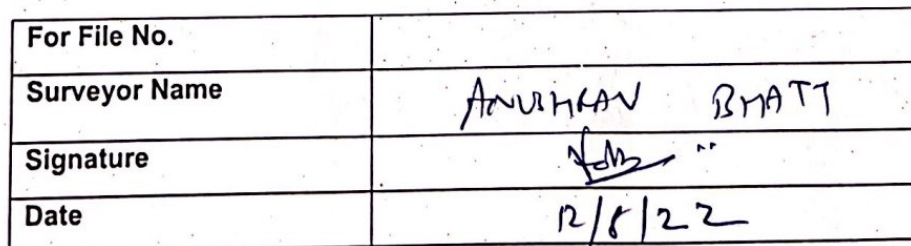 For File No.
Surveyor Name ANUBHAV BHATT
Signature
Date 12/8/22